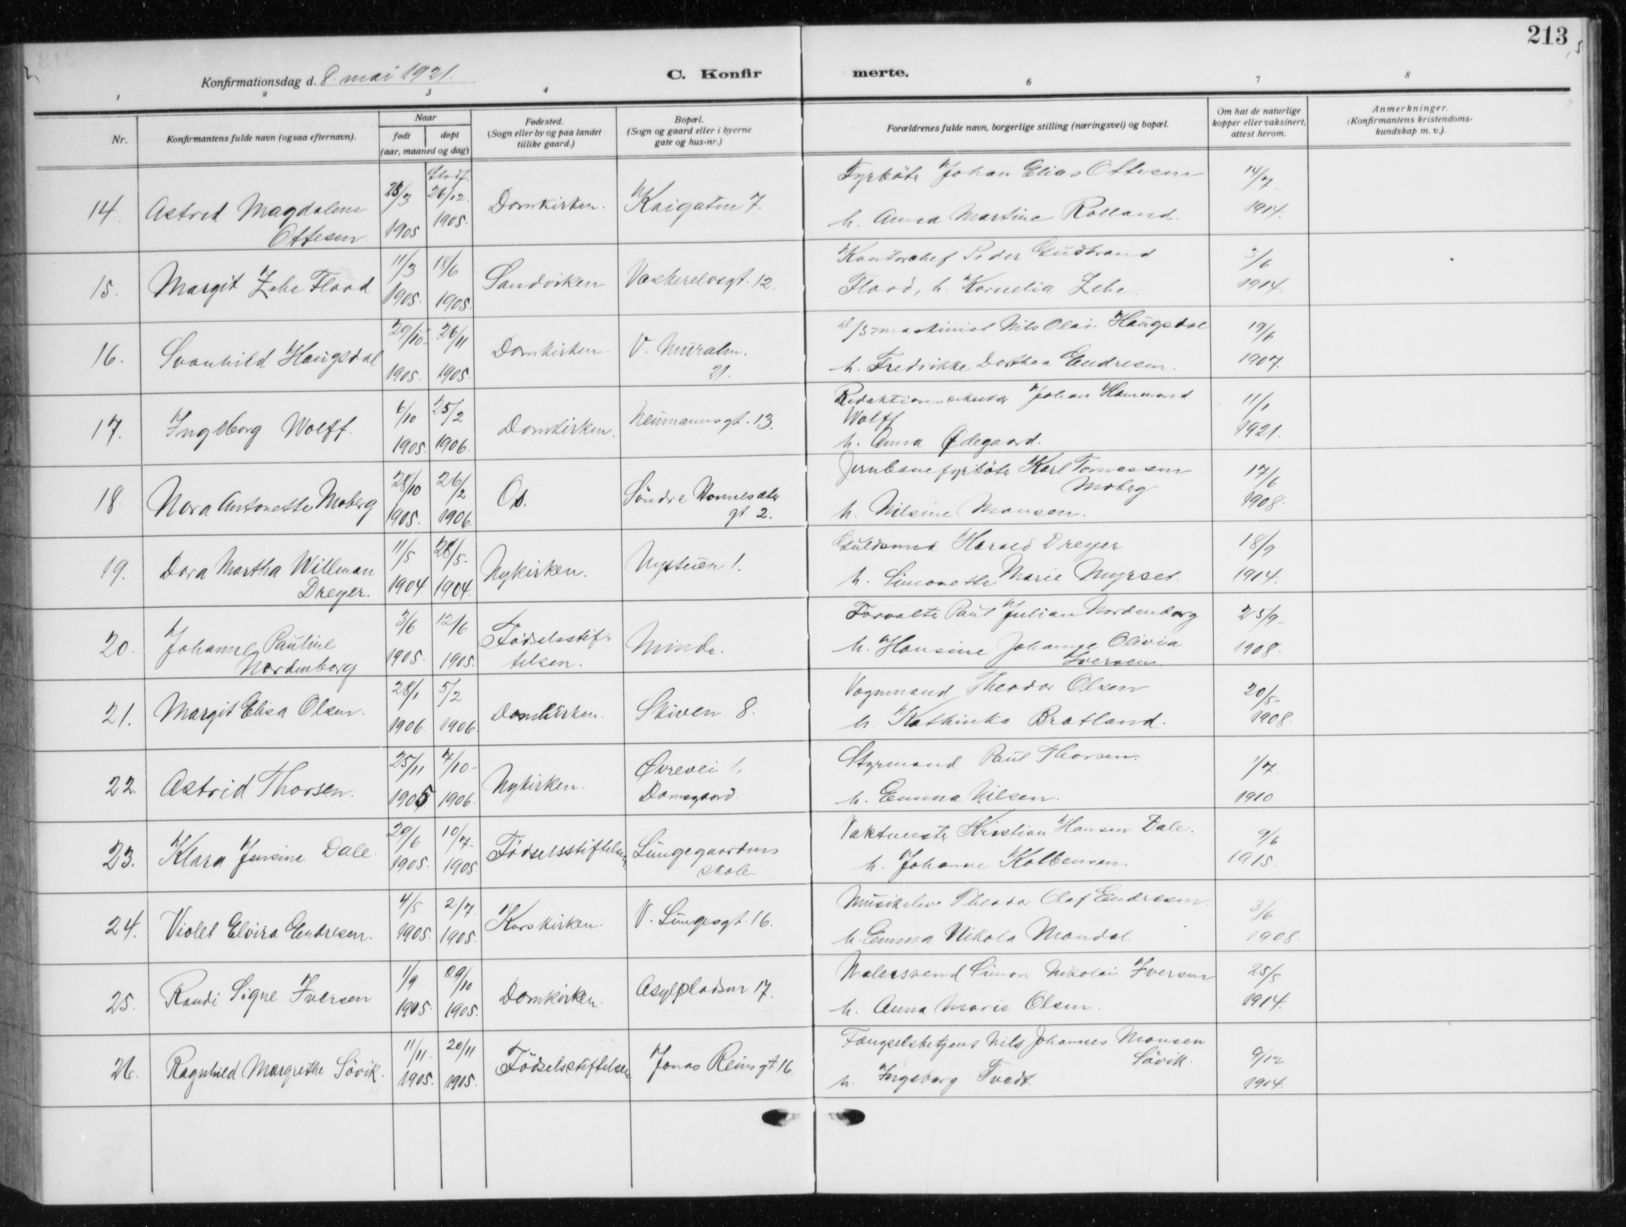 213
Konfirmationsdag d. 8. mai 1921.
C. Konfir merte.
1 2 3 4 6 7 8
Nr.
Konfirmantens fulde navn (ogsaa efternavn).
Naar
født
døpt
(aar, maaned og dag)
Fødested.
(Sogn eller by og paa landet
tillike gaard.)
Bopæl.
(Sogn og gaard eller i byerne
gate og hus-nr.)
Forældrenes fulde navn, borgerlige stilling (næringsvei) og bopæl.
Om hat de naturlige
kopper eller vaksinert,
attest herom.
Anmerkninger.
(Konfirmantens kristendoms-
kundskap m. v.).
14. Astrid Magdalene
Ottesen
25/3 1905
26/12 1905.
Domkirken.
Kaigaten 7.
Fyrbøter Johan Elias Ottesen
h. Anna Martine Rolland.
14/7
15. Margit Zehe Flood
11/3 1905.
18/6 1905
Sandviken
Vaskerelvsgt. 12.
Kontorchef Peder Gudbrand
Flood, h. Kornelia Zehe
3/6 1914.
16. Svanhild Haugsdal
29/10 1905.
26/11 1905.
Domkirken.
V. Muralm.
21.
D/S maskinist Nils Olai Haugsdal
h. Fredrikke Dorthea Endresen.
19/6 1907.
17. Ingeborg Wolff.
6/10 1905.
25/2 1906.
Domkirken.
Neumannsgt. 13.
Johan Hammond
Wolff
h. Anna Ødegaard.
11/1 1921.
18. Nora Antonette Moberg
28/10 1905.
26/2 1906.
Os.
Søndre
gt. 2.
Jernbanefyrbøter Karl Tomassen
Moberg
h. Nilsine Monsen.
17/6 1908.
19. Dora Martha Willman
Dreyer.
11/5 1904
28/5 1904.
Nykirken.
Nystuen 1.
Guldsmed Harald Dreyer
h. Simonette Marie Myrset.
18/9 1914.
20. Johanne Pauline
Nordenborg
3/6 1905.
12/6 1905.
Fødselsstif-
telsen.
Minde.
Forvalter Paul Julian Nordenborg
h. Hansine Johanne Olivia
Iversen
25/9 1908.
21. Margit Elisa Olsen.
28/1 1906.
5/2 1906
Domkirken.
Skiven 8.
Vognmand Theodor Olsen
h. Kathinka Bratland.
20/5 1908.
22. Astrid Thorsen.
25/11 1905
7/10 1906.
Nykirken.
Øvrevei 1.
Damsgaard.
Styrmand Paul Thorsen.
h. Emma Nilsen.
1/7 1910.
23. Klara Jensine Dale
29/6 1905.
10/7 1905
Fødselsstiftelsen
Lungegaardens
skole
Kristian Hansen Dale.
h. Johanne Kolbensen.
9/6 1915.
24. Violet Elvira Endresen.
4/5 1905.
2/7 1905.
Korskirken.
V. Lungegt. 16.
Musikelev Theodor Olaf Endresen.
h. Emma Nikola Mandal
3/6 1908.
25. Randi Signe Iversen
1/9 1905.
29/10 1905.
Domkirken.
Asylpladsen 17.
Malersvend Simon Nikolai Iversen
h. Anna Marie Olsen.
25/5 1914.
26. Ragnhild Margrethe Søvik.
11/11 1905.
20/11 1905.
Fødselsstiftelsen
Jonas Reinsgt 16.
Fængselsbetjent Nils Johannes Monsen
Søvik.
h. Ingeborg Tvedt
9/12 1914.